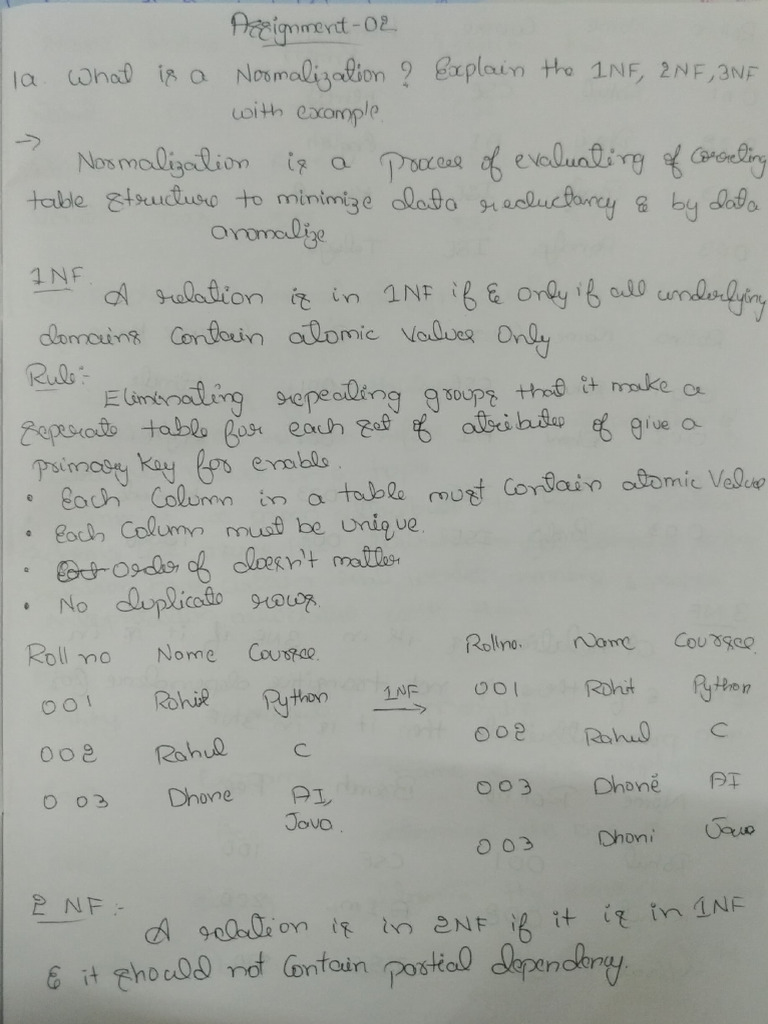 Assignment-02
1a. What is a Normalization? Explain the 1NF, 2NF, 3NF
with example.
→
Normalization is a Process of evaluating of correcting
table structure to minimize data reductancy & by data
anomalize
1NF
A relation is in 1NF if & only if all underlying
domains Contain atomic Values Only
Rule:-
Eliminating repeating groups that it make a
seperate table for each set of atributes of give a
primary key for enable.
• Each Column in a table must contain atomic Value
• Each Column must be unique.
• Order of doesn't matter
• No duplicate rows.
Roll no Name Cources.
001 Rohit Python
002 Rahul C
003 Dhone AI,
Java.
1NF
→
Rollno. Name Cources.
001 Rohit Python
002 Rahul C
003 Dhone AI
003 Dhoni Java
2 NF :-
A relation is in 2NF if it is in 1NF
& it should not Contain partial dependency.